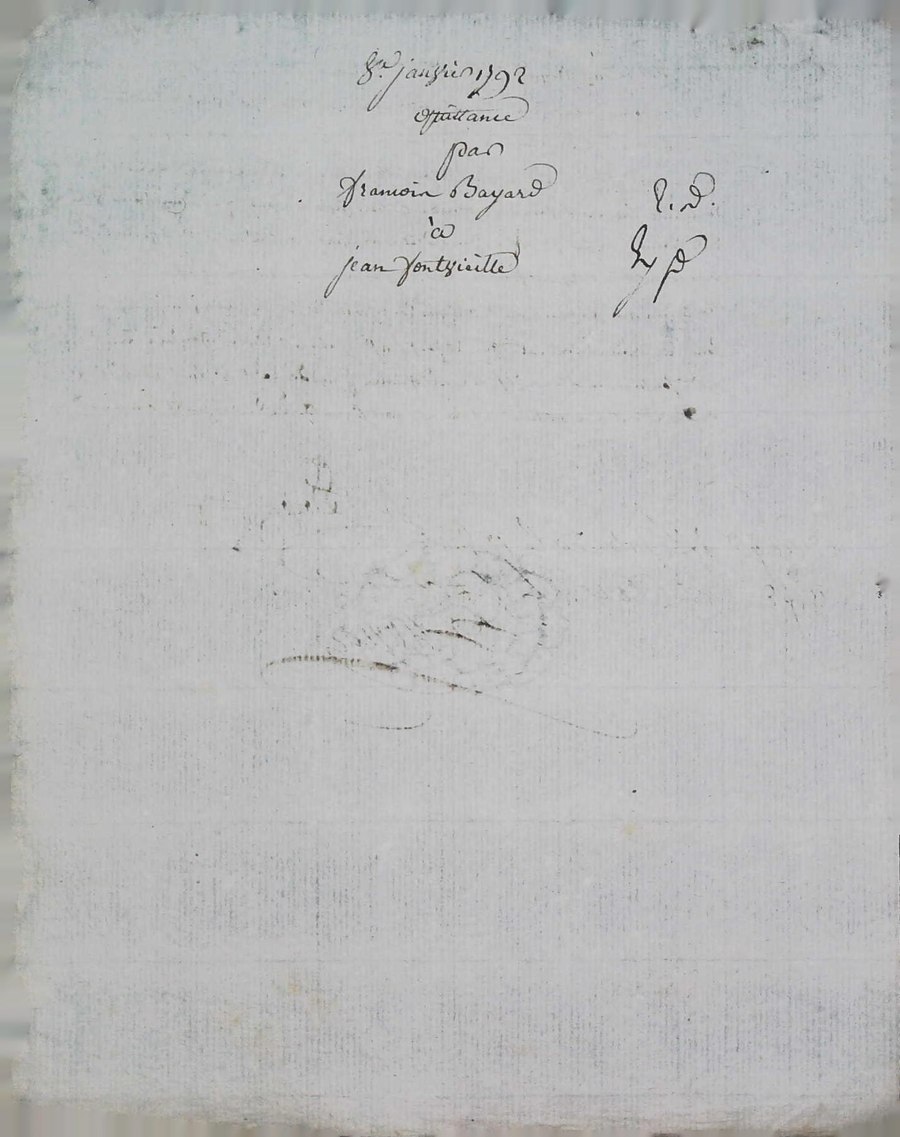 8re janvier 1792
quittance
par
francois Bayard
à
jean fontvieille